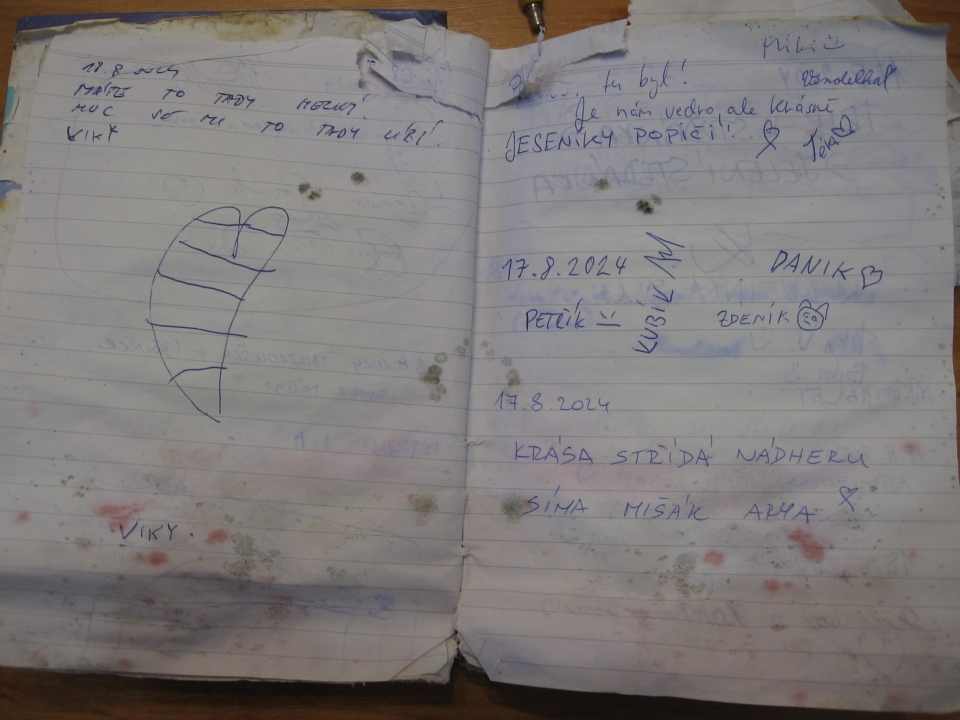 18.8.2024
MÁTE TO TADY HEZKÝ!
MOC SE MI TO TADY LÍBÍ!
VIKÝ
VIKÝ.
tu byl!
Je nám vedro, ale krásně
JESENÍKY POPIČI!
17.8.2024
KUBÍK
DANIK
PETŘÍK
ZDENÍK
17.8.2024
KRÁSA STŘÍDÁ NÁDHERU
SÍMA MIŠÁK ARYA